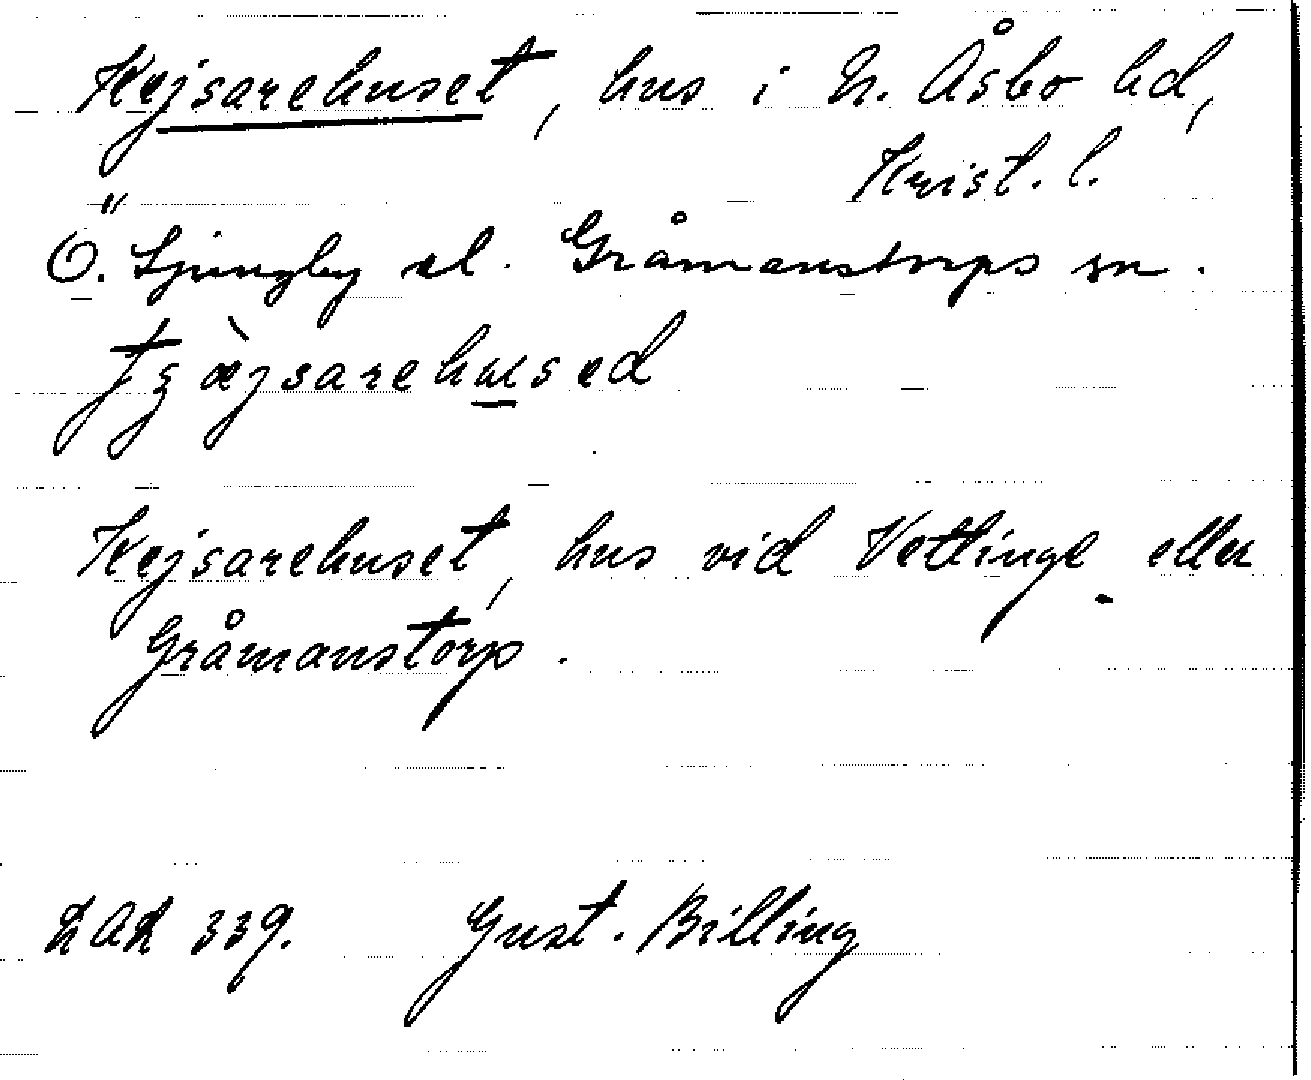 Kejsarehuset, hus i N. Åsbo hd,
Krist. l.
Ö. Ljungby el. Gråmanstorps sn.
Kejsarehuset, hus vid Vettinge eller
Gråmanstorp.
LAL 339. Gust. Billing